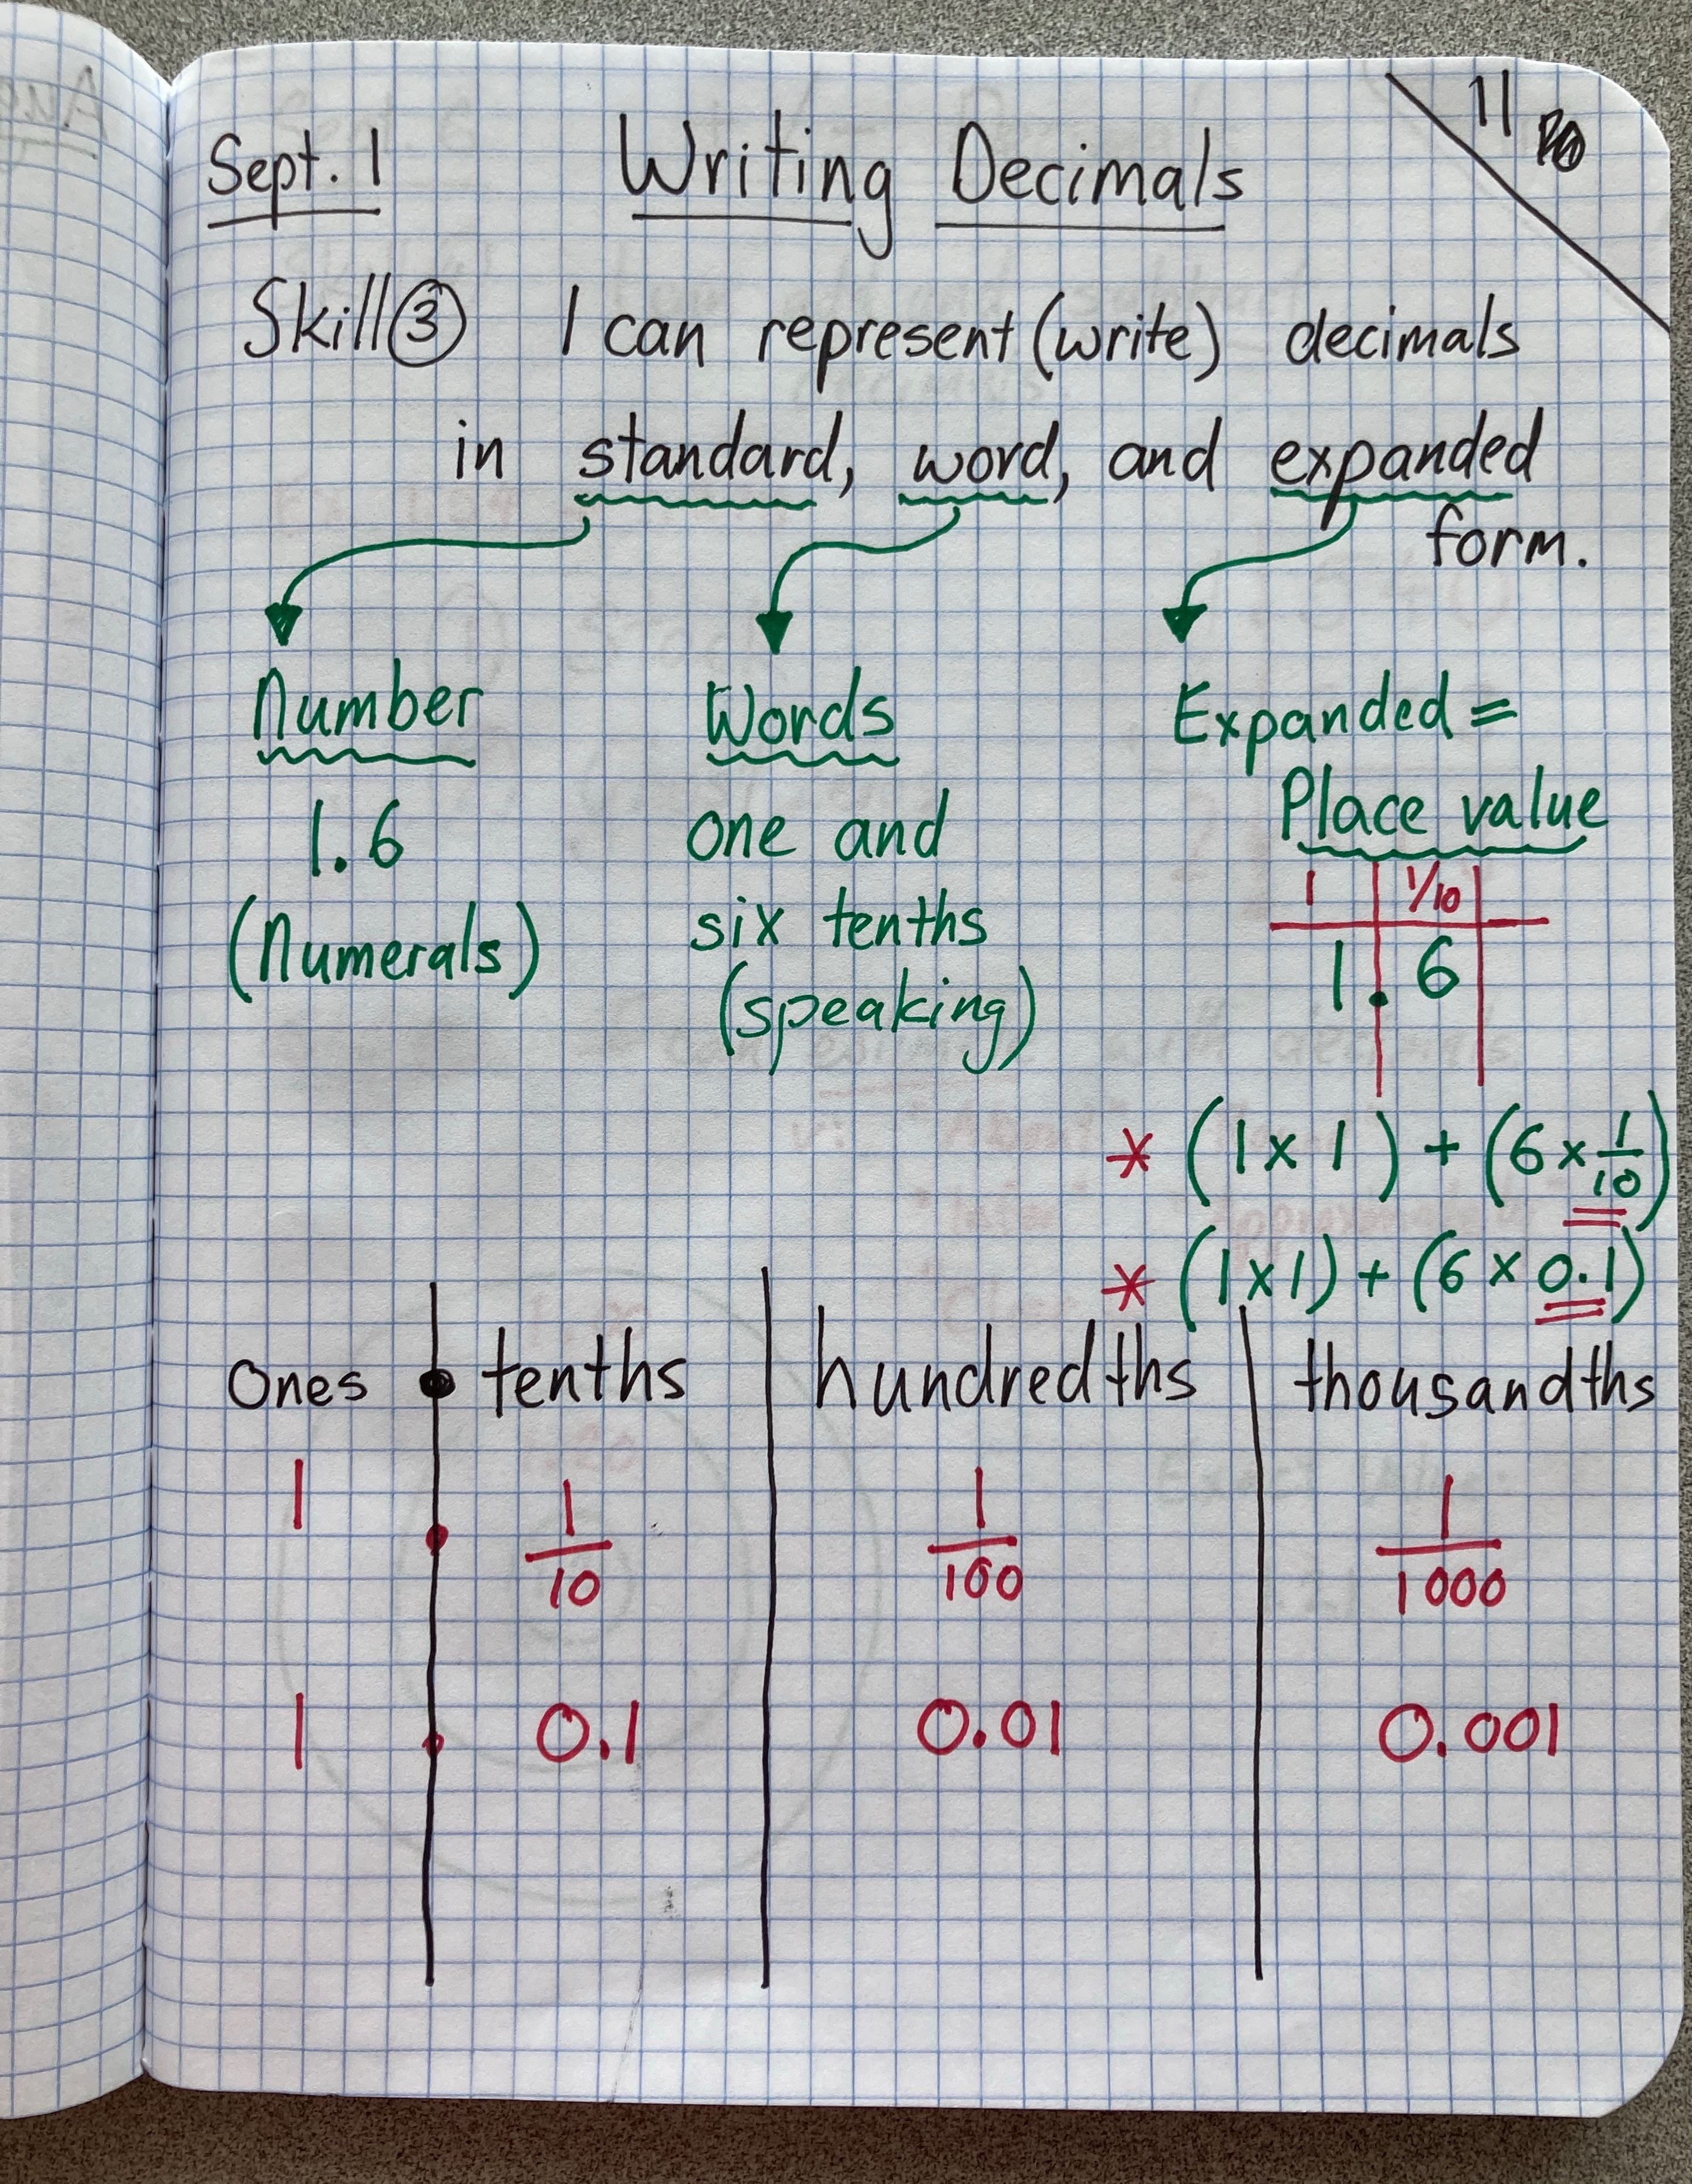 11
Sept. 1 Writing Decimals
Skill ③ I can represent (write) decimals
in standard, word, and expanded
form.
Number Words Expanded =
Place value
1.6 one and
1 1/10
(Numerals) six tenths
1.6
(speaking)
* (1 x 1) + (6 x 1/10)
* (1 x 1) + (6 x 0.1)
Ones . tenths hundredths thousandths
1 . 1/10 1/100 1/1000
1 . 0.1 0.01 0.001